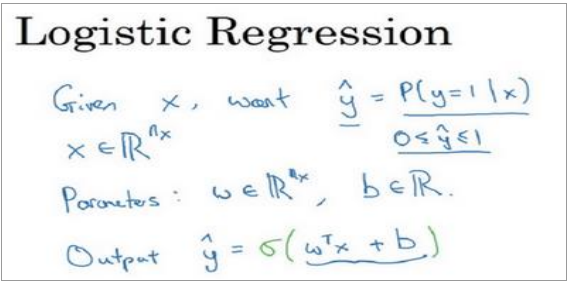 Logistic Regression
Given x, want ŷ = P(y=1|x)
x ∈ ℝⁿˣ 0 ≤ ŷ ≤ 1
Parameters: w ∈ ℝⁿˣ, b ∈ ℝ.
Output ŷ = σ(wᵀx + b)